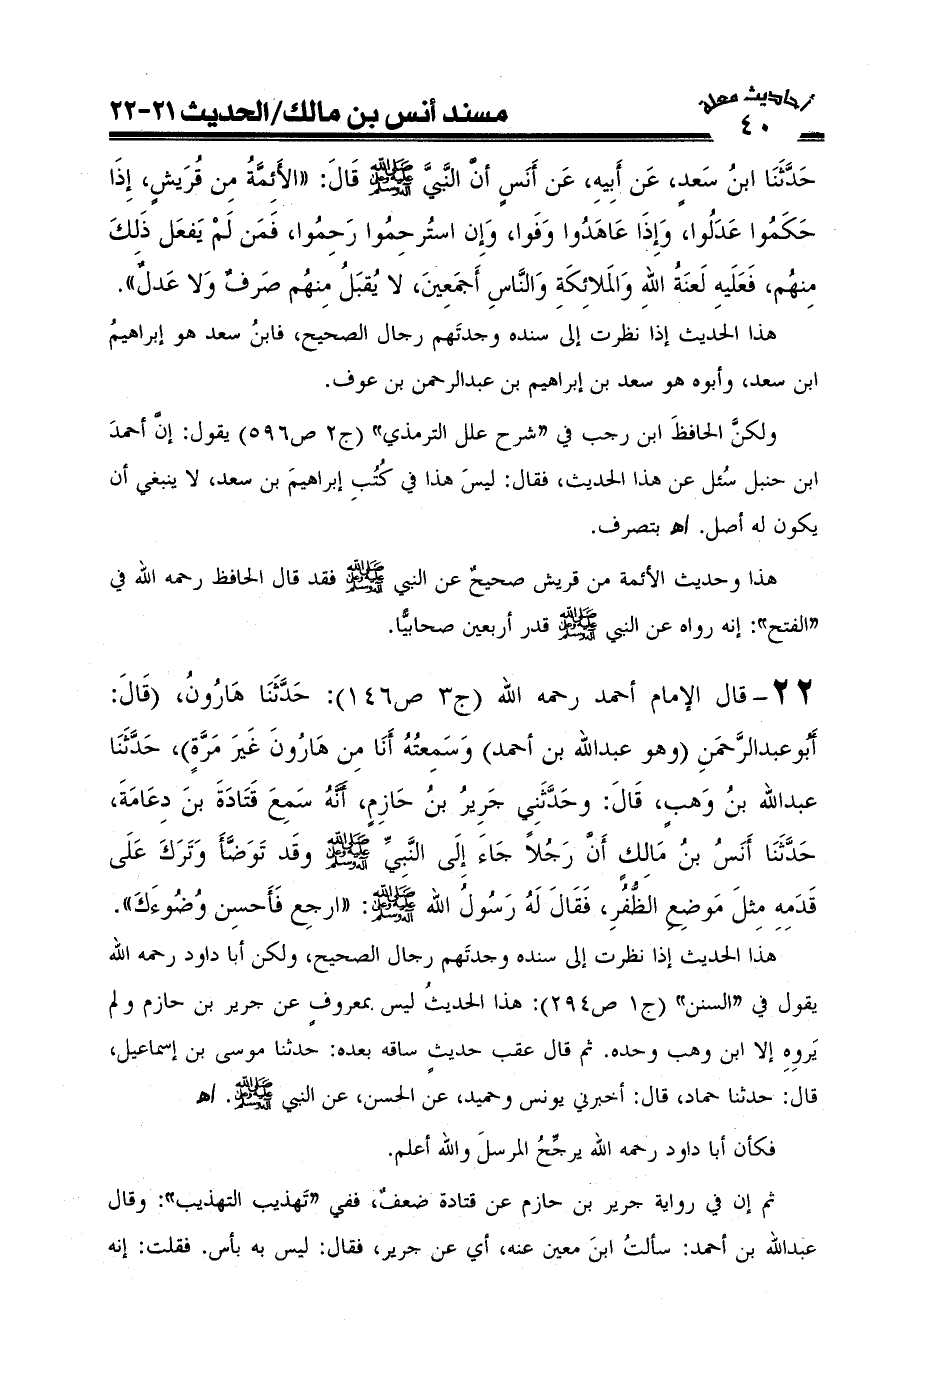 أحاديث معلة
٤٠
مسند أنس بن مالك/الحديث ٢١-٢٢
حَدَّثَنَا ابنُ سَعدٍ، عَن أَبِيهِ، عَن أَنَسٍ أنَّ النَّبِيَّ ﷺ قَالَ: «الأَئِمَّةُ مِن قُرَيشٍ، إِذَا
حَكَمُوا عَدَلُوا، وَإِذَا عَاهَدُوا وَفَوا، وَإِن استُرحِمُوا رَحِمُوا، فَمَن لَمْ يَفعَل ذَلِكَ
مِنهُم، فَعَلَيهِ لَعنَةُ اللهِ وَالمَلائِكَةِ وَالنَّاسِ أَجمَعِينَ، لا يُقبَلُ مِنهُم صَرفٌ وَلا عَدلٌ».
هذا الحديث إذا نظرت إلى سنده وجدتَهم رجال الصحيح، فابنُ سعد هو إبراهيمُ
ابن سعد، وأبوه هو سعد بن إبراهيم بن عبدالرحمن بن عوف.
ولكنَّ الحافظَ ابن رجب في «شرح علل الترمذي» (ج٢ ص٥٩٦) يقول: إنَّ أحمدَ
ابن حنبل سُئل عن هذا الحديث، فقال: ليسَ هذا في كُتُبِ إبراهيمَ بن سعد، لا ينبغي أن
يكون له أصل. اهـ بتصرف.
هذا وحديث الأئمة من قريش صحيحٌ عن النبي ﷺ فقد قال الحافظ رحمه الله في
«الفتح»: إنه رواه عن النبي ﷺ قدر أربعين صحابيًّا.
٢٢- قال الإمام أحمد رحمه الله (ج٣ ص١٤٦): حَدَّثَنَا هَارُونُ، (قَالَ:
أَبُوعبدالرَّحمَنِ (وهو عبدالله بن أحمد) وَسَمِعتُهُ أَنَا مِن هَارُونَ غَيرَ مَرَّةٍ)، حَدَّثَنَا
عبدالله بنُ وَهبٍ، قَالَ: وحَدَّثَنِي جَرِيرُ بنُ حَازِمٍ، أَنَّهُ سَمِعَ قَتَادَةَ بنَ دِعَامَةَ،
حَدَّثَنَا أَنَسُ بنُ مَالِكٍ أَنَّ رَجُلاً جَاءَ إِلَى النَّبِيِّ ﷺ وقَد تَوَضَّأَ وَتَرَكَ عَلَى
قَدَمِهِ مِثلَ مَوضِعِ الظُّفُرِ، فَقَالَ لَهُ رَسُولُ الله ﷺ: «ارجِع فَأَحسِن وُضُوءَكَ».
هذا الحديث إذا نظرت إلى سنده وجدتَهم رجال الصحيح، ولكن أبا داود رحمه الله
يقول في «السنن» (ج١ ص٢٩٤): هذا الحديثُ ليس بمعروفٍ عن جرير بن حازم ولم
يَروِهِ إلا ابن وهب وحده. ثم قال عقب حديثٍ ساقه بعده: حدثنا موسى بن إسماعيل،
قال: حدثنا حماد، قال: أخبرني يونس وحميد، عن الحسن، عن النبي ﷺ. اهـ
فكأن أبا داود رحمه الله يرجِّحُ المرسلَ والله أعلم.
ثم إن في رواية جرير بن حازم عن قتادة ضعفٌ، ففي «تهذيب التهذيب»: وقال
عبدالله بن أحمد: سألتُ ابنَ معين عنه، أي عن جرير، فقال: ليس به بأس. فقلت: إنه